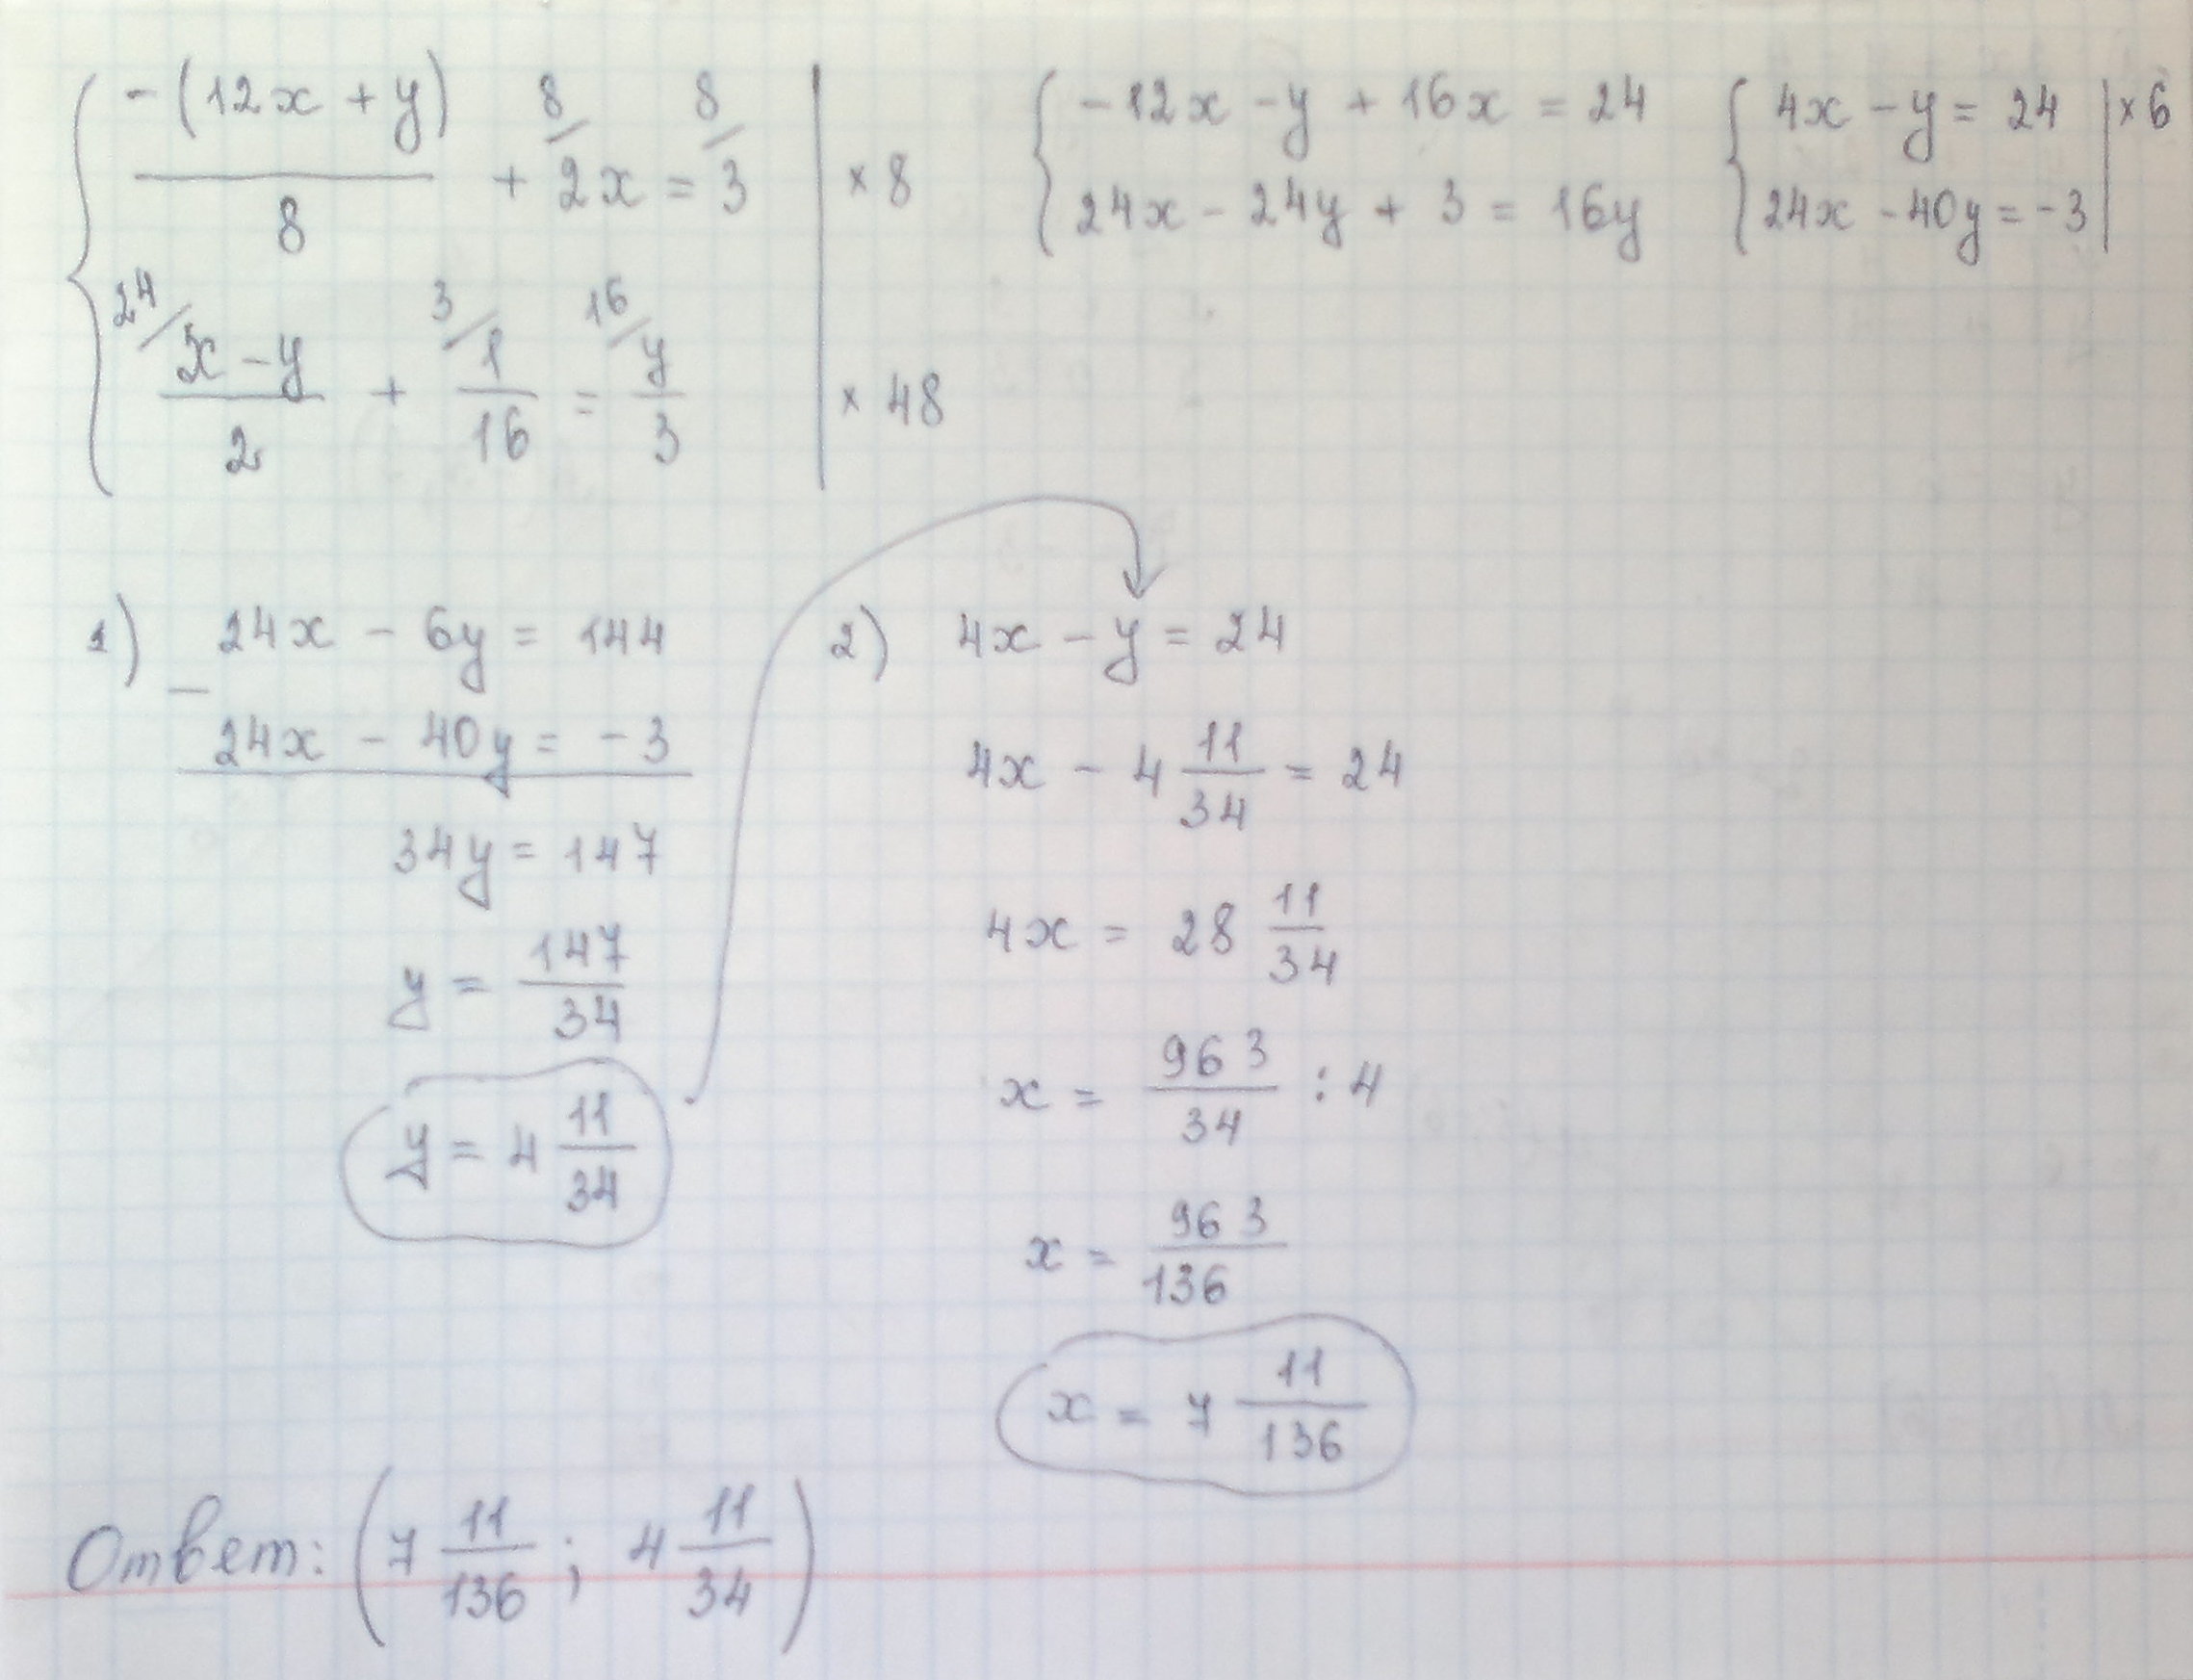 -(12x + y)/8 + 8/ 2x = 8/ 3 | × 8
24/ (x - y)/2 + 3/ 1/16 = 16/ y/3 | × 48
{ -12x - y + 16x = 24
24x - 24y + 3 = 16y
{ 4x - y = 24 | × 6
24x - 40y = -3 |
1) 24x - 6y = 144
-
24x - 40y = -3
34y = 147
y = 147/34
y = 4 11/34
2) 4x - y = 24
4x - 4 11/34 = 24
4x = 28 11/34
x = 963/34 : 4
x = 963/136
x = 7 11/136
Ответ: (7 11/136 ; 4 11/34)